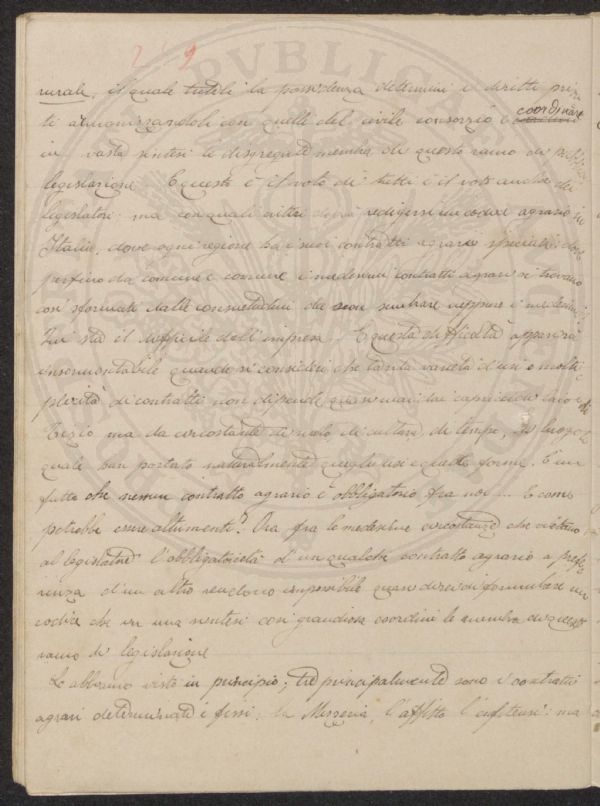 249
rurale, il quale tuteli la possidenza determini i diritti priva
ti armonizzandoli con quelli del civile consorzio e coordinare
in vasta sintesi le disgregate membra di questo ramo di
legislazione. E questo è il voto di tutti e il voto anche dei
legislatori: ma con quali criteri dovrà redigersi un codice agrario in
Italia, dove ogni regione ha i suoi contratti agrari speciali: dove
perfino da comune e comune i medesimi contratti agrari si trovano
così sformati dalle consuetudini da non sembrare neppure i medesimi
Qui sta il difficile dell'impresa. E questa difficoltà apparirà
insormontabile quando si consideri che tanta varietà d'usi e molti-
plicità di contratti non dipende quasi mai dai capricci di Caio e di
Tizio ma da circostanze di modo di cultura, di tempo, di luogo le
quali han portato naturalmente quegli usi e quelle forme. È un
fatto che nessun contratto agrario è obbligatorio fra noi ... E come
potrebbe essere altrimenti? Ora fra le medesime circostanze che vietano
al legislatore l'obbligatorietà d'un qualche contratto agrario a prefe-
renza d'un altro rendono impossibile quasi direi di formulare un
codice che in una sintesi con grandiosa coordini le membra di questo
ramo di legislazione
Lo abbiamo visto in principio; tre principalmente sono i contratti
agrari determinati e fissi: la Mezzeria, l'affitto l'enfiteusi: ma